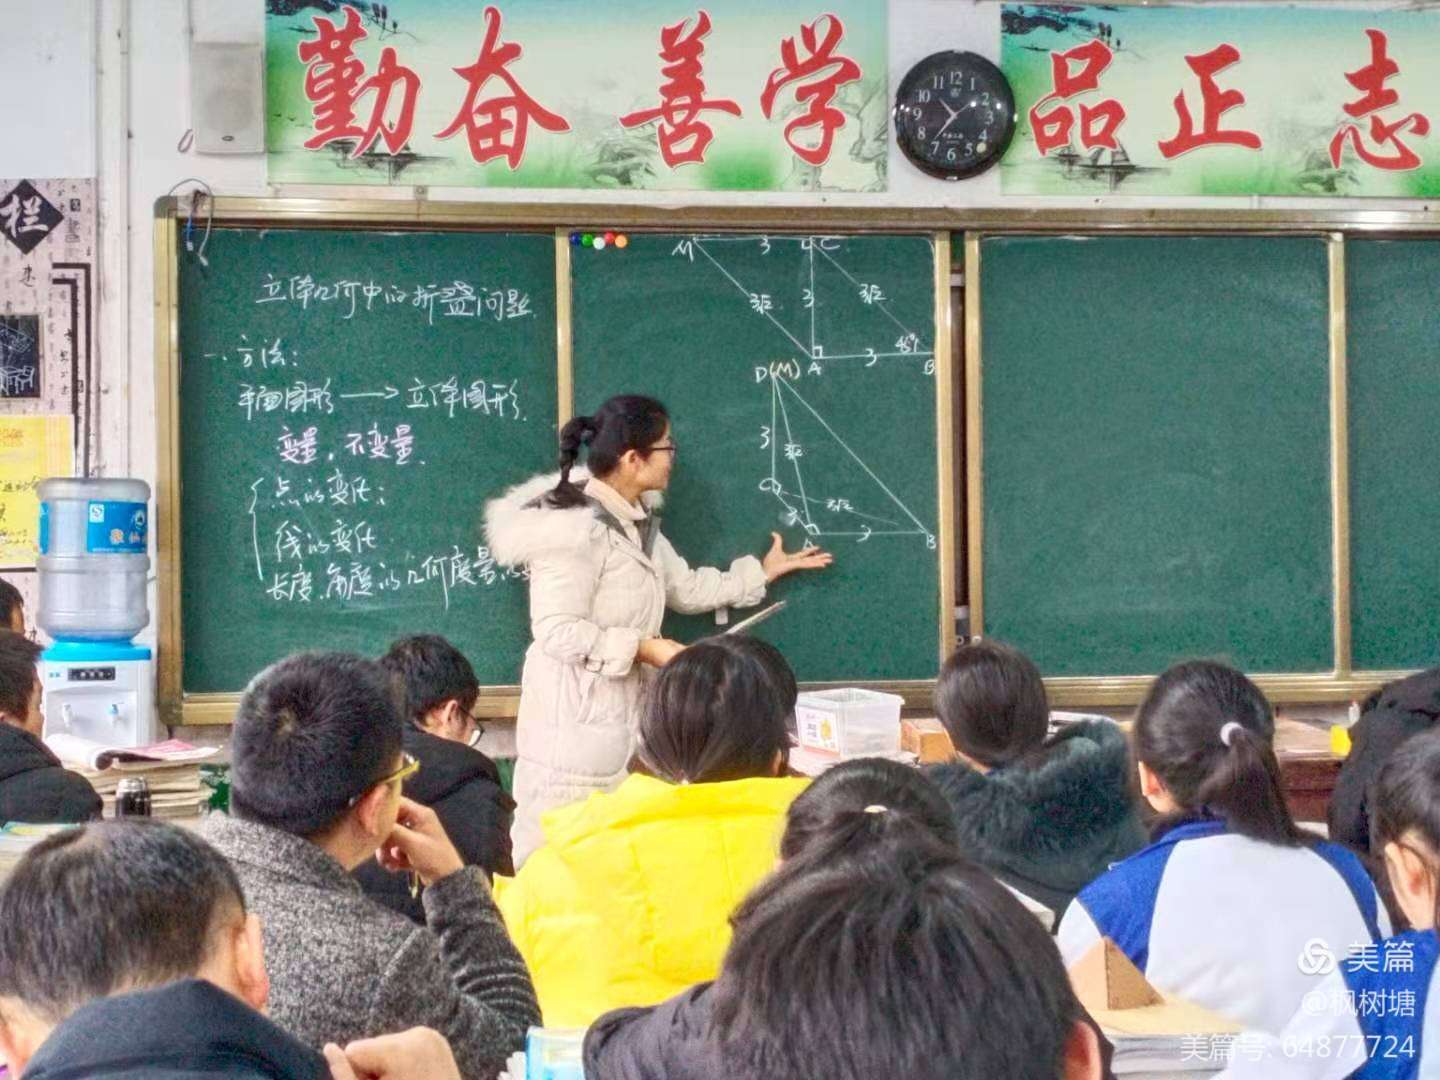 勤奋 善学
品正 志
12 1 2 3 4 5 6 7 8 9 10 11
栏
立体几何中的折叠问题.
一、方法:
平面图形 → 立体图形.
变量, 不变量.
点的变化;
线的变化
长度、角度的几何度量的变
M 3 C
3√2 3 3√2
45°
A 3 B
D(M)
3 3√2
C 3√2
3
A 3 B
美篇
@枫树塘
美篇号: 64877724